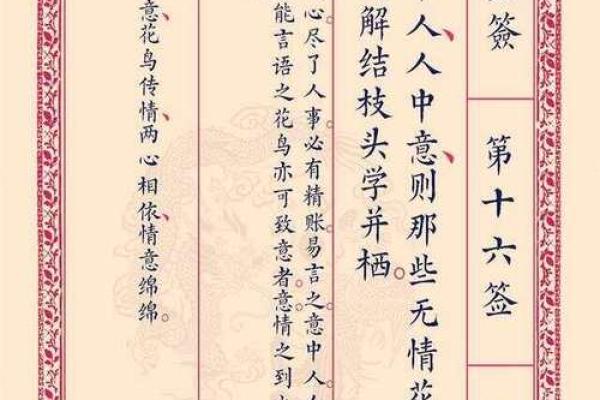 簽
第十六签
人、人中意、则那些无情花
解结枝头学并栖。
心。尽了人事。必有精账。易言之。意中人。
能言语之花鸟亦可致意者。意情之到
意、花鸟传情、两心相依、情意绵绵。